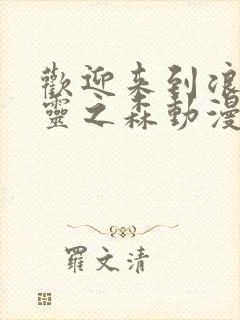 歡迎来到浪
靈之森動漫
羅文清